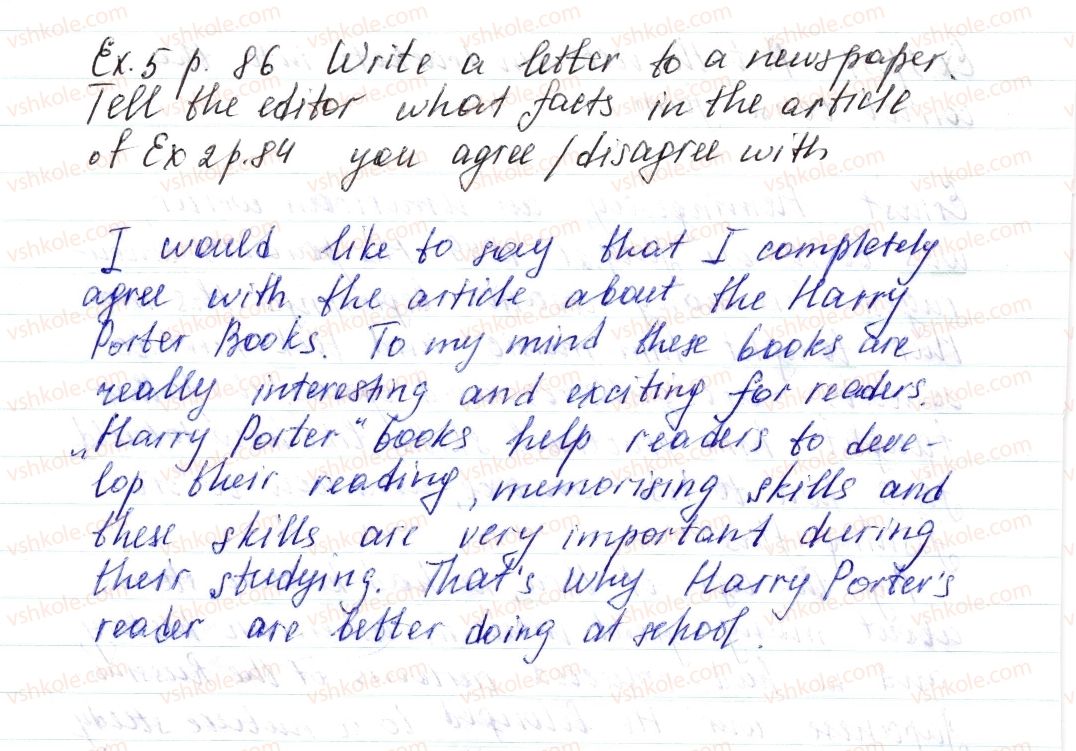 Ex. 5 p. 86 Write a letter to a newspaper.
Tell the editor what facts in the article
of Ex 2 p. 84 you agree / disagree with
I would like to say that I completely
agree with the article about the Harry
Porter Books. To my mind these books are
really interesting and exciting for readers.
„Harry Porter“ books help readers to deve-
lop their reading, memorising skills and
these skills are very important during
their studying. That's why Harry Porter's
reader are better doing at school.